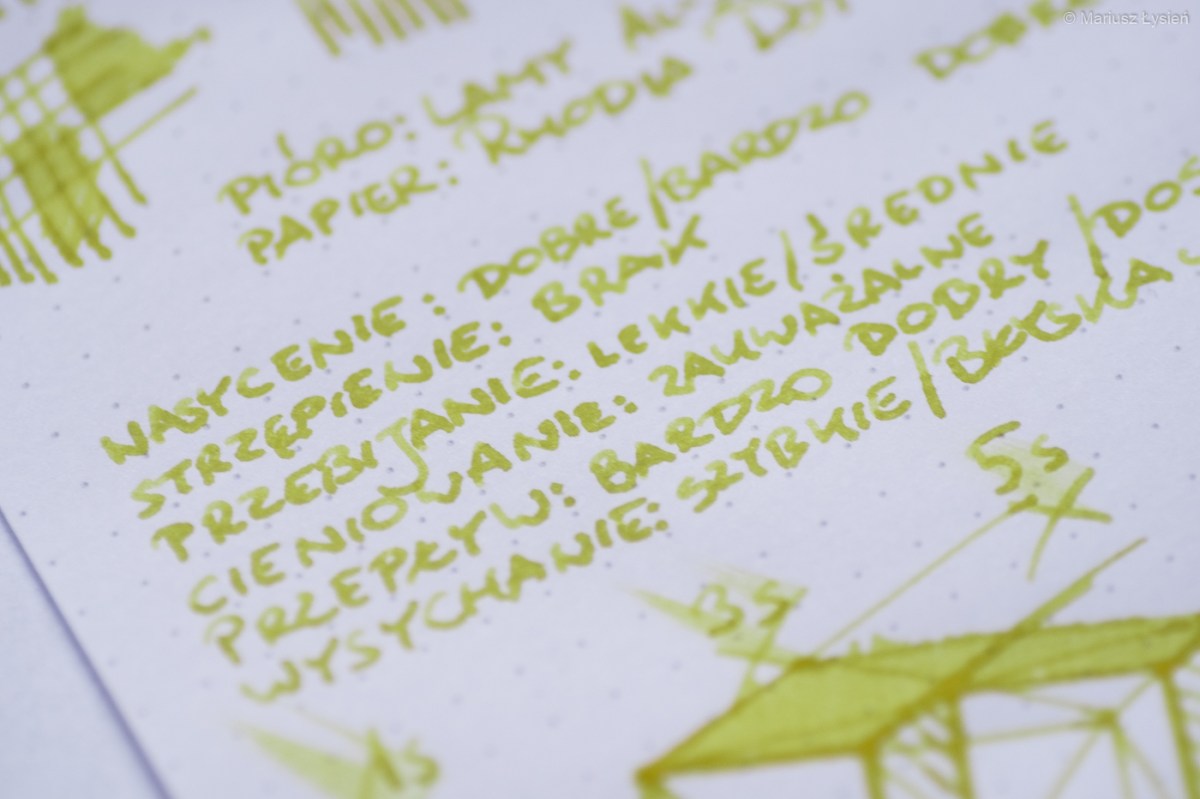 © Mariusz Łysień
PIÓRO: LAMY
PAPIER: RHODIA
NASYCENIE: DOBRE/BARDZO
STRZĘPIENIE: BRAK
PRZEBIJANIE: LEKKIE/ŚREDNIE
CIENIOWANIE: ZAUWAŻALNE
PRZEPŁYW: BARDZO DOBRY /
WYSYCHANIE: SZYBKIE/
5s
3s
1s